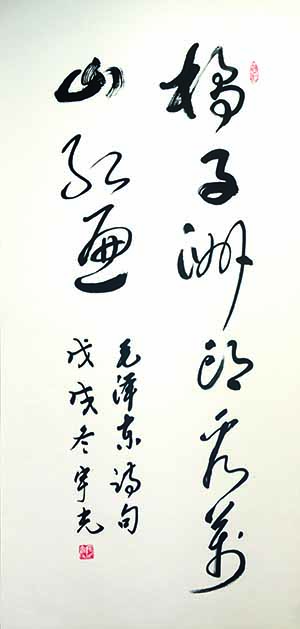 橘子洲头看萬
山红遍
毛泽东诗句
戊戌冬宇光